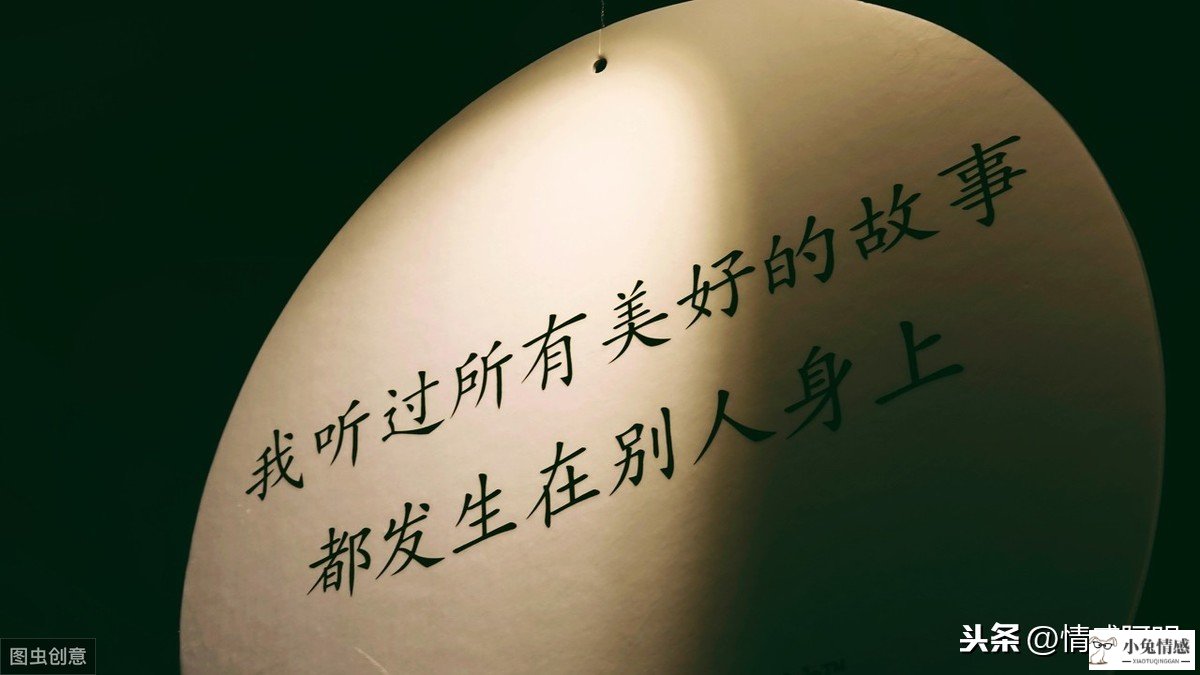 我听过所有美好的故事
都发生在别人身上
图虫创意
头条 @情感
小兔情感
XIAOTUQINGGAN